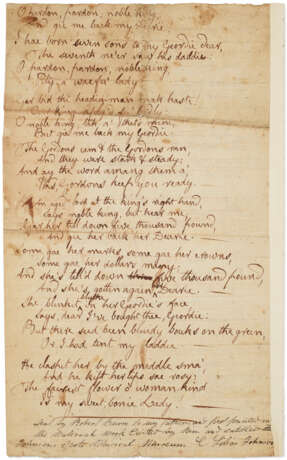 O pardon, pardon, noble King
gie me back my Dearie.
I hae born seven sons to my Geordie dear,
The seventh ne'er saw his daddie:
O pardon, pardon, noble king,
Pity a waefu' lady
bid the heading-man mak haste!
O noble king, tak a' that's mine,
But gie me back my Geordie
The Gordons cam & the Gordons ran,
And they were stark & steady;
And ay the word amang them a',
Was, Gordons keep you ready.
An aged lord at the king's right hand,
Says, noble king, but hear me
Gar her tell down five thousand pound,
And gie her back her Dearie.
Some gae her marks, some gae her crowns,
Some gae her dollars many;
And she's tell'd down five thousand pound,
And she's gotten again her Dearie.
She blinket blythe in her Geordie's face
Says, dear I've bought thee, Geordie:
But there sud been bluidy bouks on the green,
Or I had tint my laddie
He claspit her by the middle sma'
And he kist her lips sae rosy:
The fairest flower o' woman-kind
Is my sweet, bonie Lady.
Sent by Robert Burns to my father and first printed in
the National work Edited by him and entitled the
Johnson's Scots Musical Museum